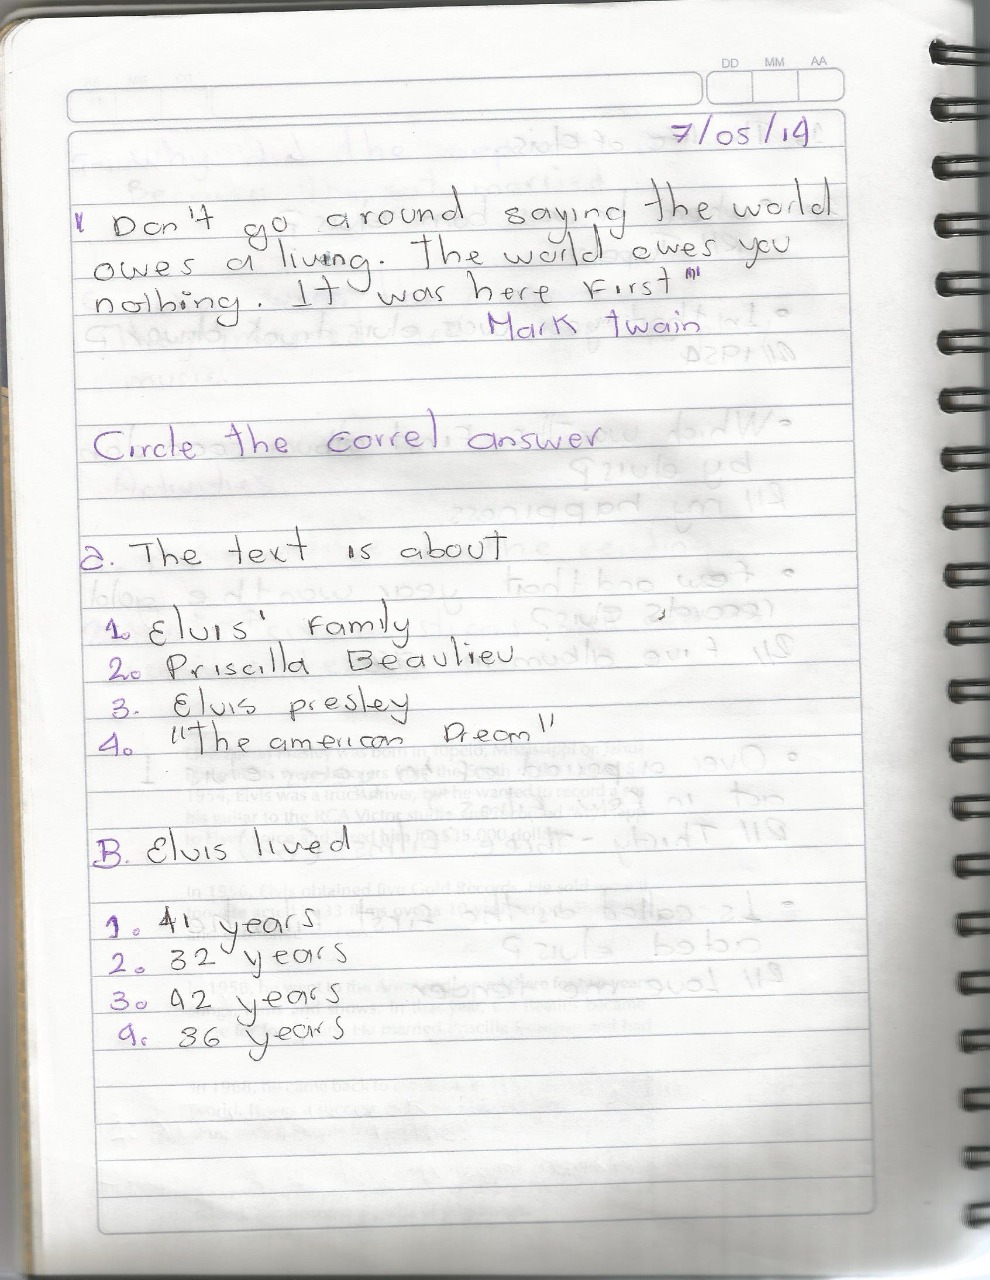 DD MM AA
7/05/14
" Don't go around saying the world
owes a living. The world owes you
nothing. It was here First"
Mark twain
Circle the correl answer
a. The text is about
1. Elvis' Family
2. Priscilla Beaulieu
3. Elvis presley
4. "The american Dream"
B. Elvis lived
1. 41 years
2. 32 years
3. 42 years
4. 36 years